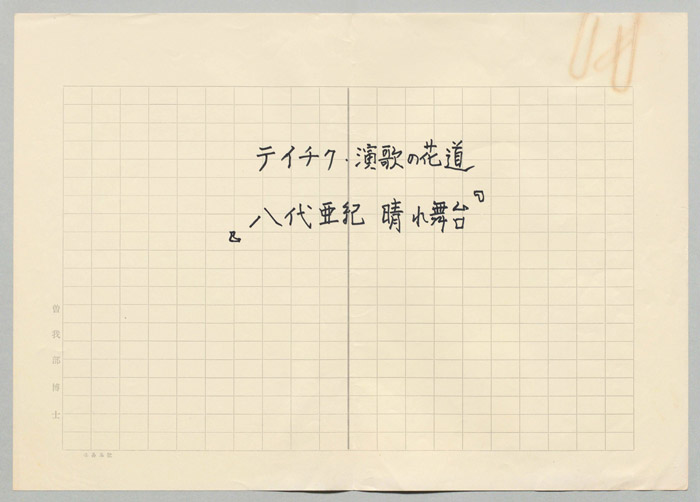 テイチク・演歌の花道
『八代亜紀 晴れ舞台』
曽我部博士